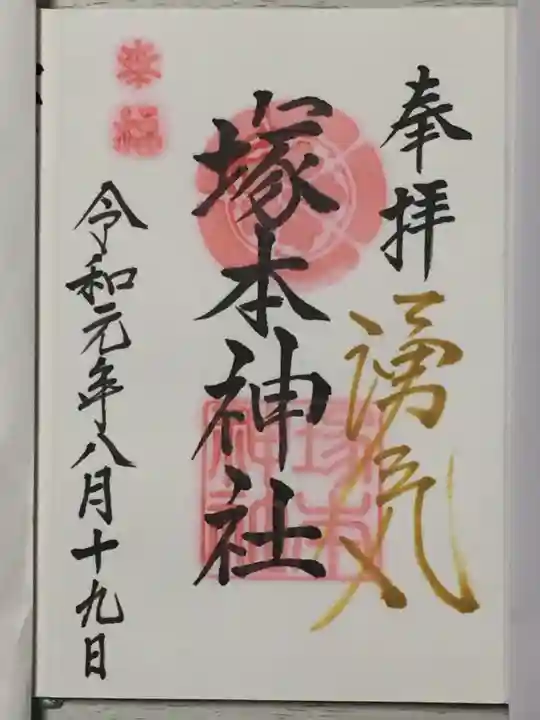 奉拝
湧気
塚本神社
令和元年八月十九日
幸福
塚本
神社